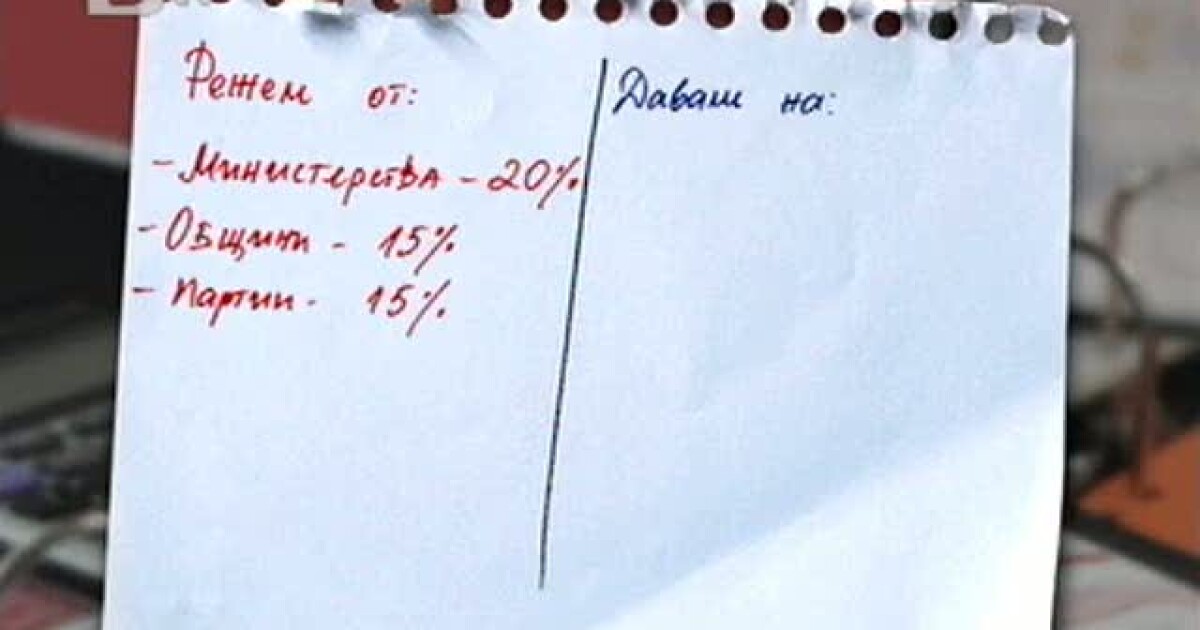 Режем от:
- Министерства - 20%
- Общини - 15%
- Партии - 15%
Даваш на: